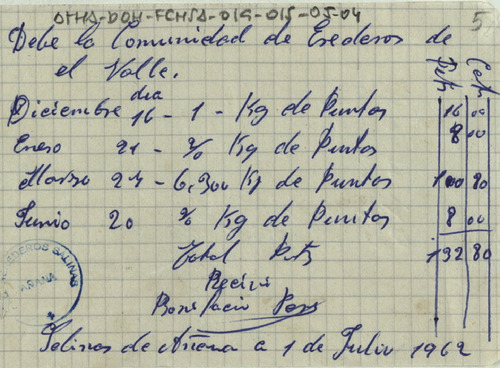 ATHA-DOH-FCHSA-019-015-05-04
5
Debe la Comunidad de Erederos de
el Valle.
Pts Cts
dia
Diciembre 16 - 1 - Kg de Puntas 16 00
Enero 21 - ½ Kg de Puntas 8 00
Marzo 27 - 6,300 Kg de Puntas 100 80
Junio 20 ½ Kg de Puntas 8 00
Total Pts 132 80
EDEROS SALINAS
AÑANA
Recivi
Bonifacio
Salinas de Añana a 1 de Julio 1962